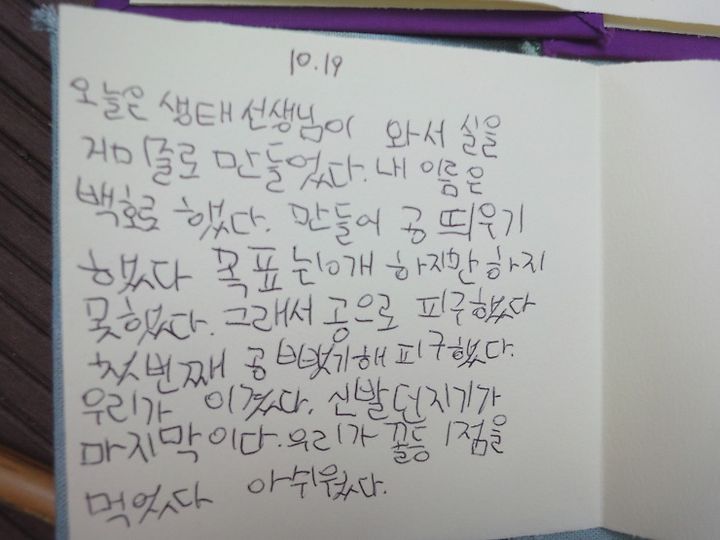 10.19
오늘은 생태선생님이 와서 실을
거미줄로 만들었다. 내 이름은
백호로 했다. 만들어 공 띄우기
했다 목표는 10개 하지만 하지
못했다. 그래서 공으로 피구했다
첫번째 공 뺏기해 피구했다.
우리가 이겼다. 신발던지기가
마지막이다. 우리가 꼴등 1점을
먹었다 아쉬웠다.